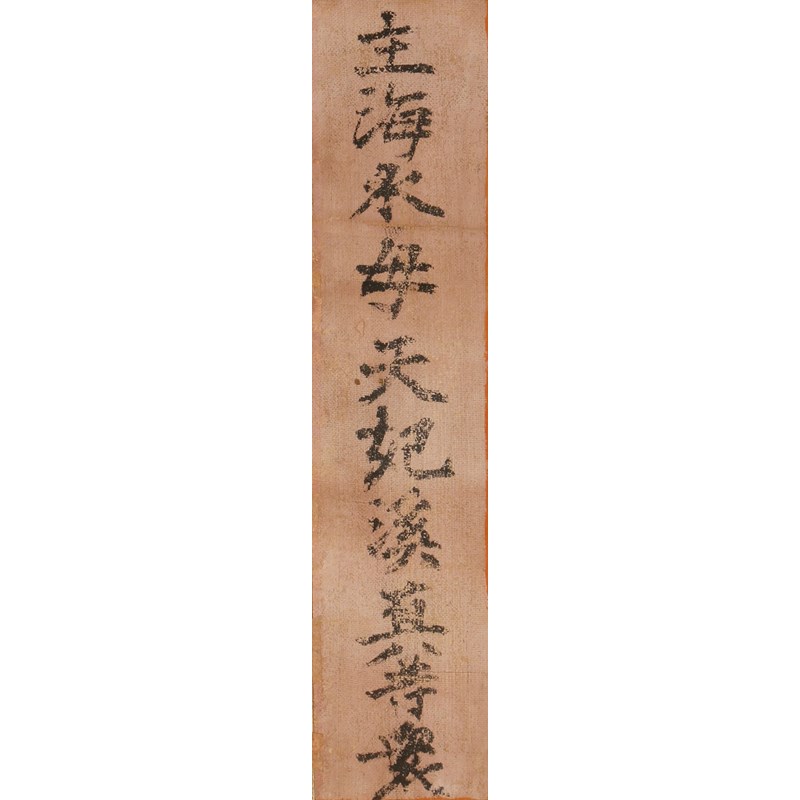 主海水母天妃溪真等衆